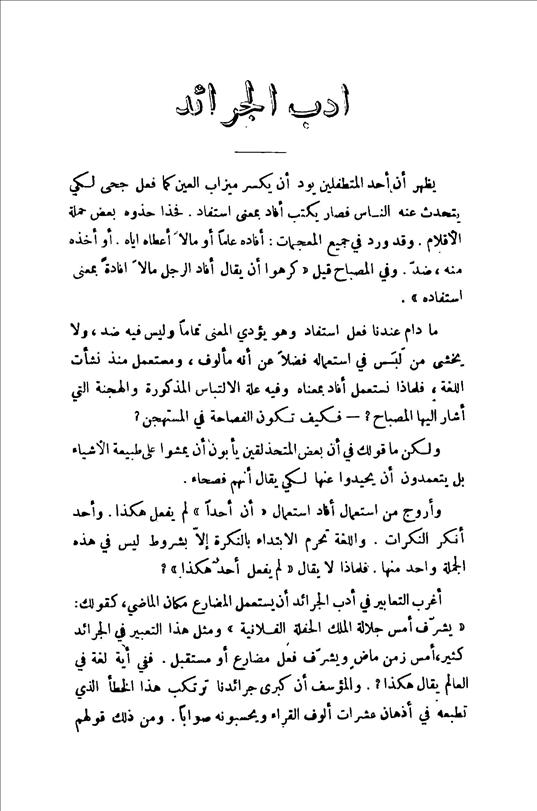 ادب الجرائد
يظهر أن أحد المتطفلين يود أن يكسر ميزاب العين كما فعل جحى لكي
يتحدث عنه الناس فصار يكتب أفاد بمعنى استفاد . فحذا حذوه بعض حملة
الأقلام . وقد ورد في جميع المعجمات : أفاده علماً أو مالاً أعطاه اياه . أو أخذه
منه ، ضدّ . وفي المصباح قيل « كرهوا أن يقال أفاد الرجل مالاً افادةً بمعنى
استفاده » .
ما دام عندنا فعل استفاد وهو يؤدي المعنى تماماً وليس فيه ضد ، ولا
يخشى من لَبَس في استعماله فضلاً عن أنه مألوف ، ومستعمل منذ نشأت
اللغة ، فلماذا نستعمل أفاد بمعناه وفيه علة الالتباس المذكورة والهجنة التي
أشار اليها المصباح ? — فكيف تكون الفصاحة في المستهجن ?
ولكن ما قولك في أن بعض المتحذلقين يأبون أن يمشوا على طبيعة الأشياء
بل يتعمدون أن يحيدوا عنها لكي يقال أنهم فصحاء .
وأروج من استعمال أفاد استعمال « أن أحداً » لم يفعل هكذا . وأحد
أنكر النكرات . واللغة تحرم الابتداء بالنكرة إلاّ بشروط ليس في هذه
الجملة واحد منها . فلماذا لا يقال « لم يفعل أحدٌ هكذا » ?
أغرب التعابير في أدب الجرائد أن يستعمل المضارع مكان الماضي، كقولك:
« يشرّف أمس جلالة الملك الحفلة الفلانية » ومثل هذا التعبير في الجرائد
كثير، أمس زمن ماض ويشرّف فعل مضارع أو مستقبل . ففي أية لغة في
العالم يقال هكذا ? . والمؤسف أن كبرى جرائدنا ترتكب هذا الخطأ الذي
تطبعه في أذهان عشرات ألوف القراء ويحسبونه صواباً . ومن ذلك قولهم